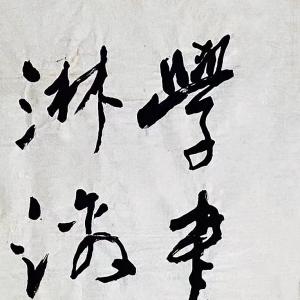 學書
淋漓